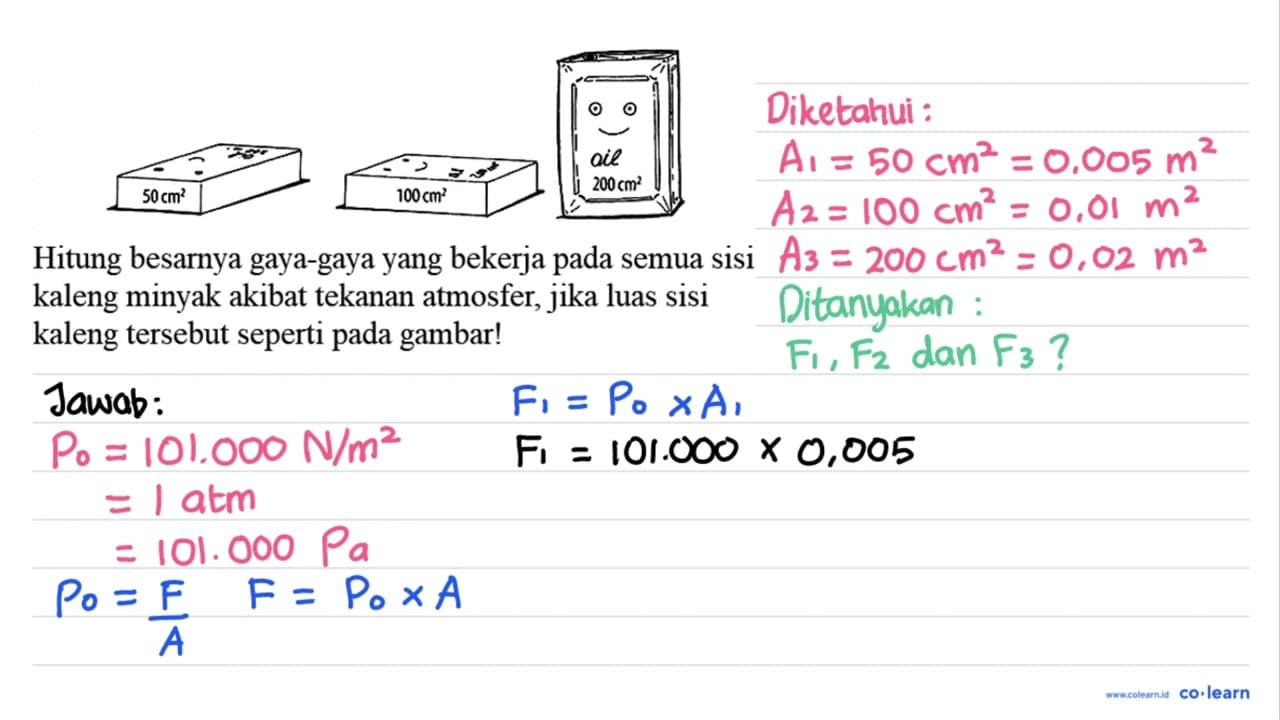 50 cm²
100 cm²
oil
200 cm²
Hitung besarnya gaya-gaya yang bekerja pada semua sisi
kaleng minyak akibat tekanan atmosfer, jika luas sisi
kaleng tersebut seperti pada gambar!
Diketahui :
A₁ = 50 cm² = 0,005 m²
A₂ = 100 cm² = 0,01 m²
A₃ = 200 cm² = 0,02 m²
Ditanyakan :
F₁, F₂ dan F₃ ?
Jawab :
P₀ = 101.000 N/m²
= 1 atm
= 101.000 Pa
P₀ = F/A F = P₀ × A
F₁ = P₀ × A₁
F₁ = 101.000 × 0,005
www.colearn.id co·learn